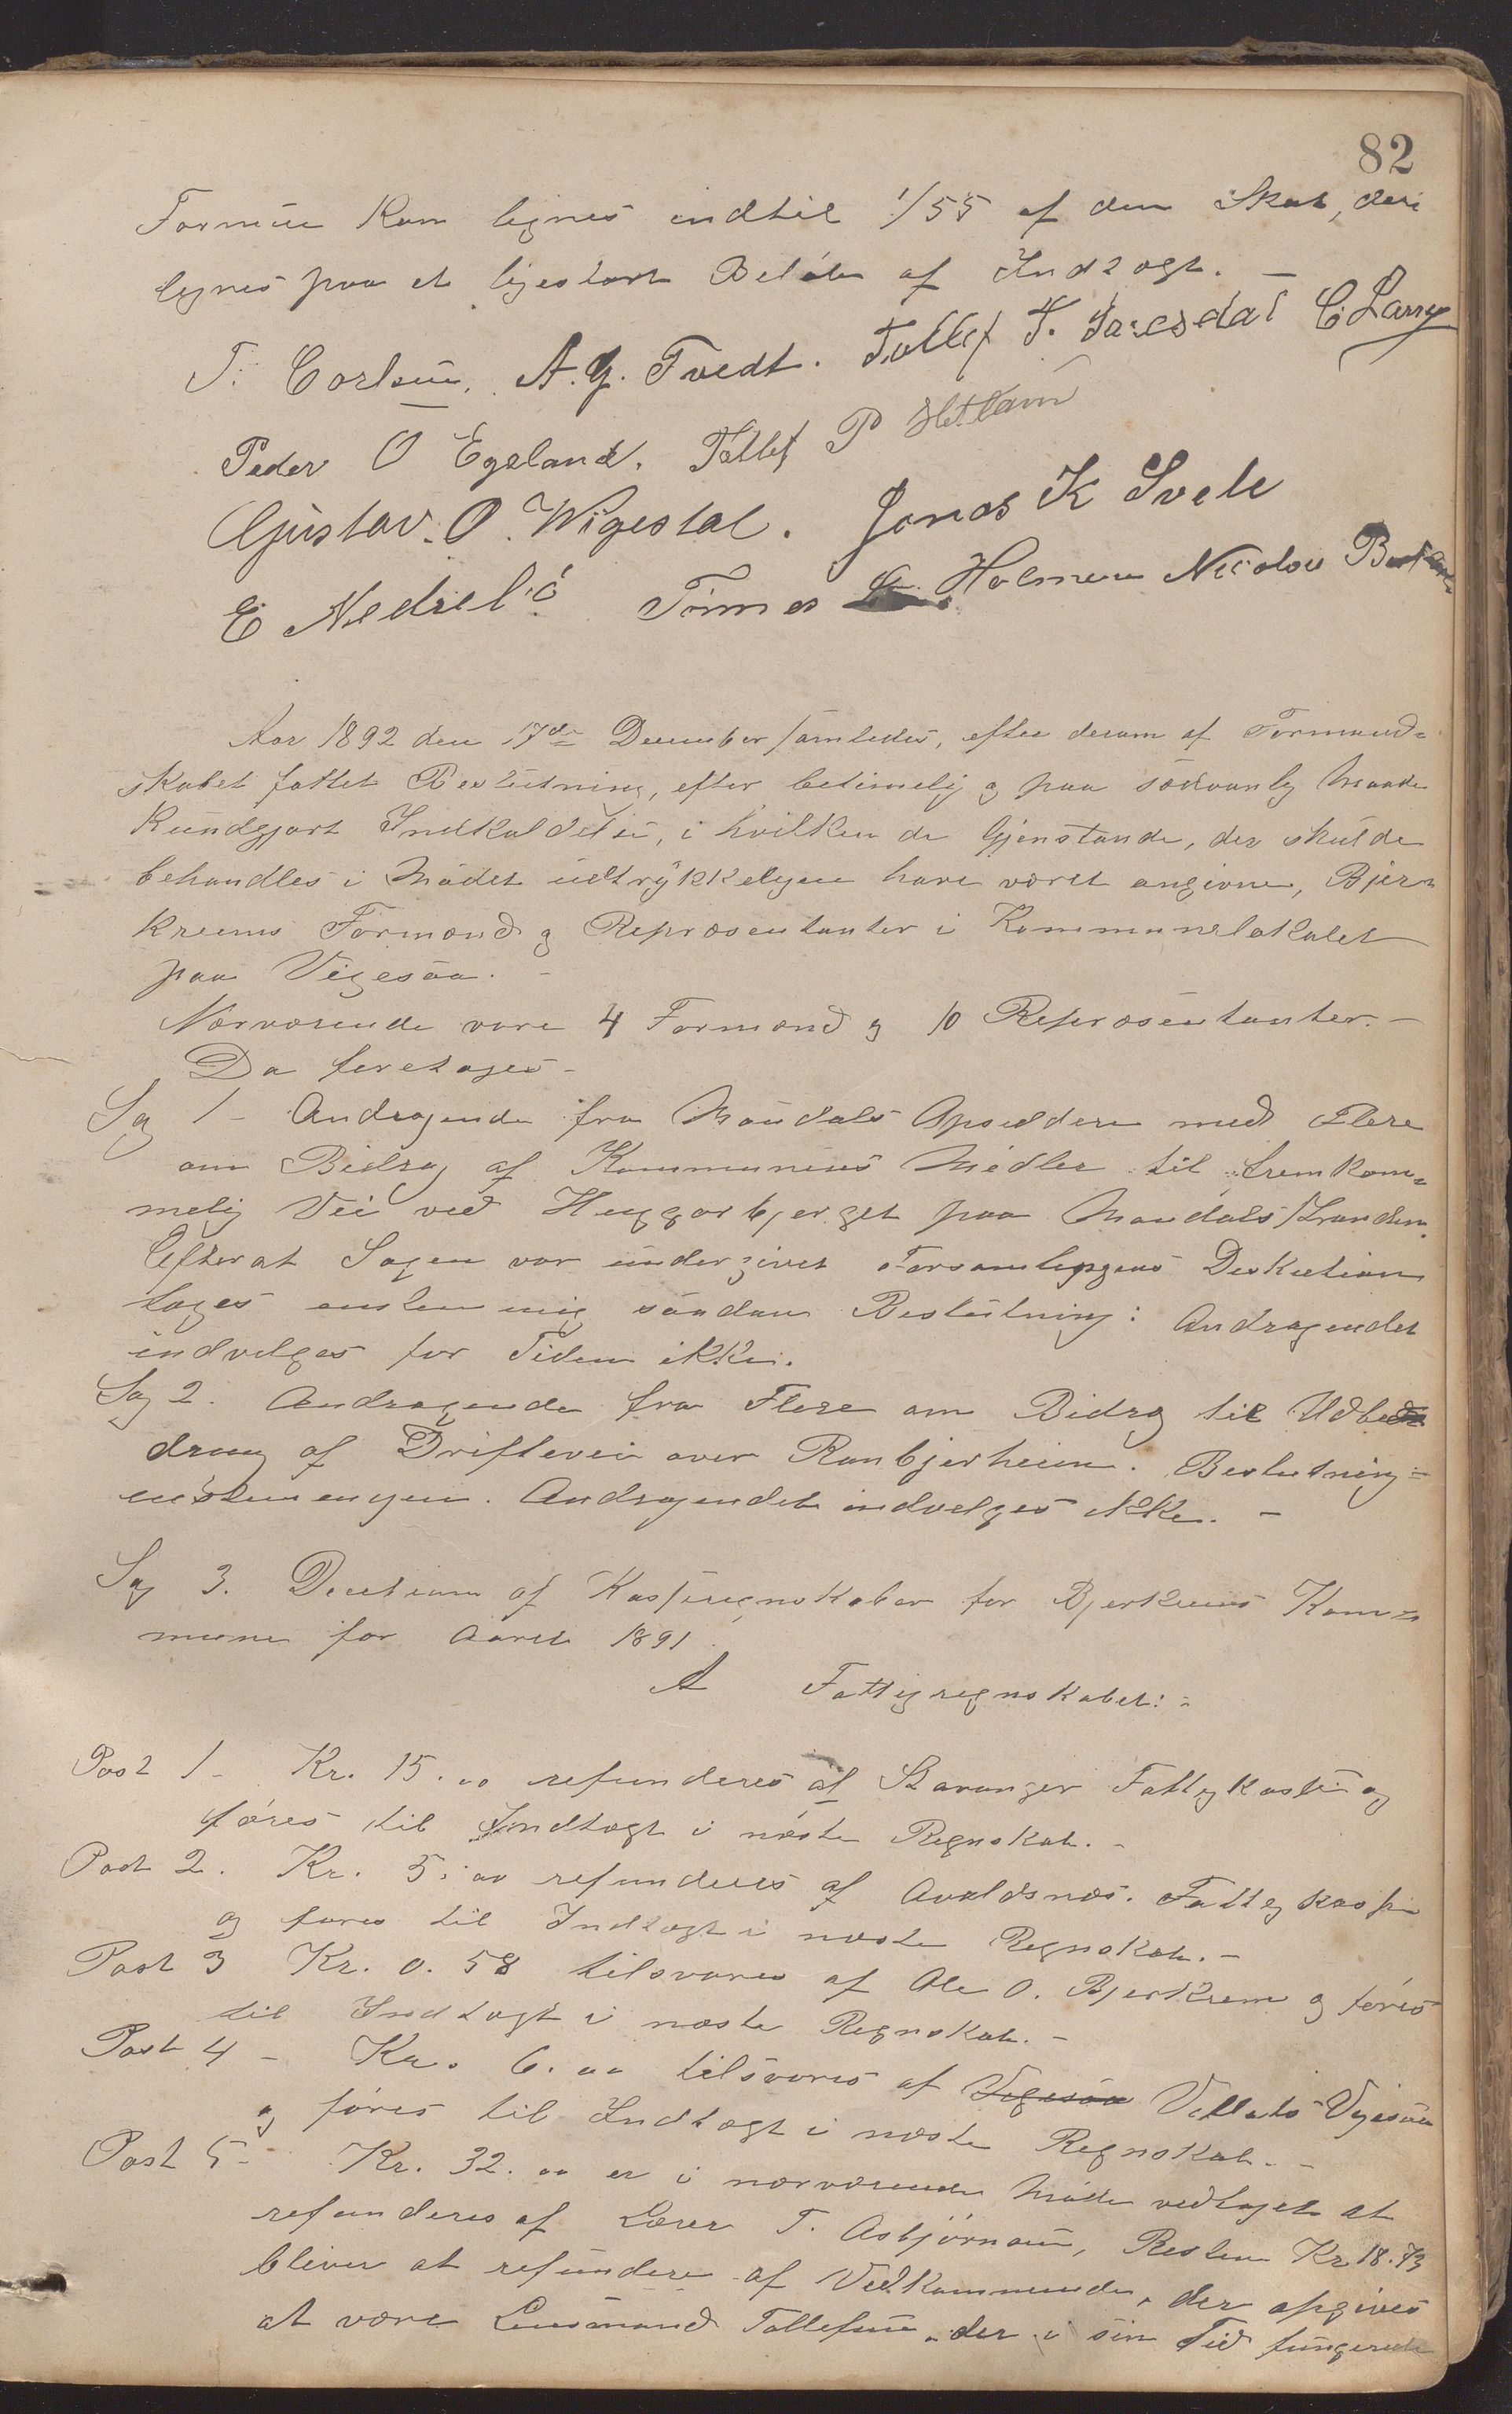 82
Formue kan lignes indtil 1/55 af den Skat, der
lignes paa et ligestort Beløb af Indtægt. –
T. Corlsen. A. G. Tvedt. Tollef T. C. Larry
Peder O Egeland. Tollef P Hetland
Gustav. O. Wigestal. Jonas K Svele
E Nedrebö Tønnes Holmen Nicolai
Aar 1892 den 17de December samledes, efter derom af Formand-
skabet fattet Beslutning, efter betimelig og paa sædvanlig Maade
Kundgjort Indkaldelse, i hvilken de Gjenstande, der skulde
behandles i Mødet udtrykkeligen have været angivne, Bjer-
kreims Formænd og Repræsentanter i Kommunelokalet
paa Vigesaa. –
Nærværende vare 4 Formænd og 10 Repræsentanter. –
Da foretoges –
Sag 1 – Andragende fra Maudals Opsiddere med Flere
om Bidrag af Kommunens Midler til fremkom-
melig Vei ved Huggarbjerget paa Maudals/tranden.
Efterat Sagen var undergivet Forsamlingens Diskution
toges enstemmig saadan Beslutning: Andragendet
indvilges for Tiden ikke.
Sag 2. Andragende fra Flere om Bidrag til Udbe
dring af Driftevei over Runbjerheien. Beslutning:
enstemmigen. Andragendet indvilges ikke. –
Sag 3. Decision af Kasseregnskaber for Bjerkreims Kom-
mune for Aaret 1891
A Fattigregnskabet: –
Post 1 – Kr. 15.00 refunderes af Stavanger Fattigkasse og
føres til Indtægt i næste Regnskab. –
Post 2. Kr. 5.00 refunderes af Avaldsnæs. Fattigkasse
og føres til Indtægt i næste Regnskab. –
Post 3 Kr. 0.58 tilsvares af Ole O. Bjerkrem og føres
til Indtægt i næste Regnskab. –
Post 4 – Kr. 6.00 tilsvares af Vigesaa Vigesaa
og føres til Indtægt i næste Regnskab. –
Post 5 – Kr. 32.00 er i nærværende Møde vedtaget at
refunderes af Lærer T. Asbjørnsen, Resten Kr 18.73
bliver at refundere af Vedkommende, der opgives
at være Lensmand Tollefsen, der i sin Tid fungerede